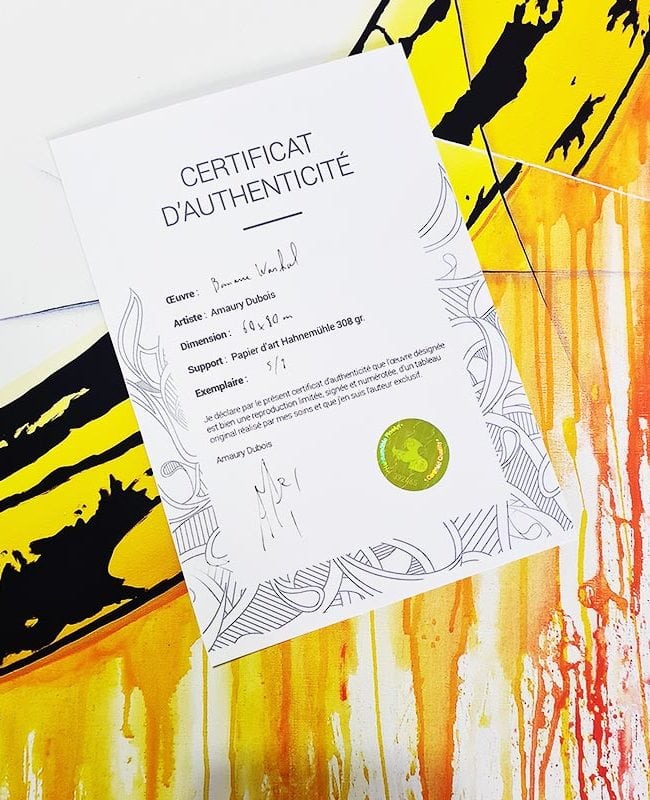 CERTIFICAT
D'AUTHENTICITÉ
Œuvre : Banane Warhol
Artiste : Amaury Dubois
Dimension : 60x80 cm
Support : Papier d'art Hahnemühle 308 gr.
Exemplaire : 5/8
Je déclare par le présent certificat d'authenticité que l'œuvre désignée
est bien une reproduction limitée, signée et numérotée, d'un tableau
original réalisé par mes soins et que j'en suis l'auteur exclusif.
Amaury Dubois